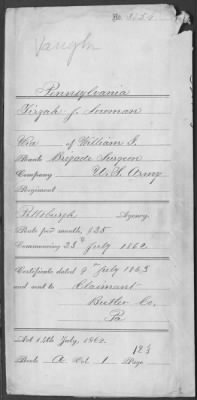 No. 3,254
Vaughn
Pennsylvania
Tirzah J.
Wid of William J.
Rank Brigade Surgeon
Company U.S. Army
Regiment
Pittsburgh Agency.
Rate per month, $25
Commencing 23d July 1862
Certificate dated 9 July 1863
and sent to Claimant
Butler Co.
Pa
Act 14th July, 1862.
Book A Vol. 1 Page 123